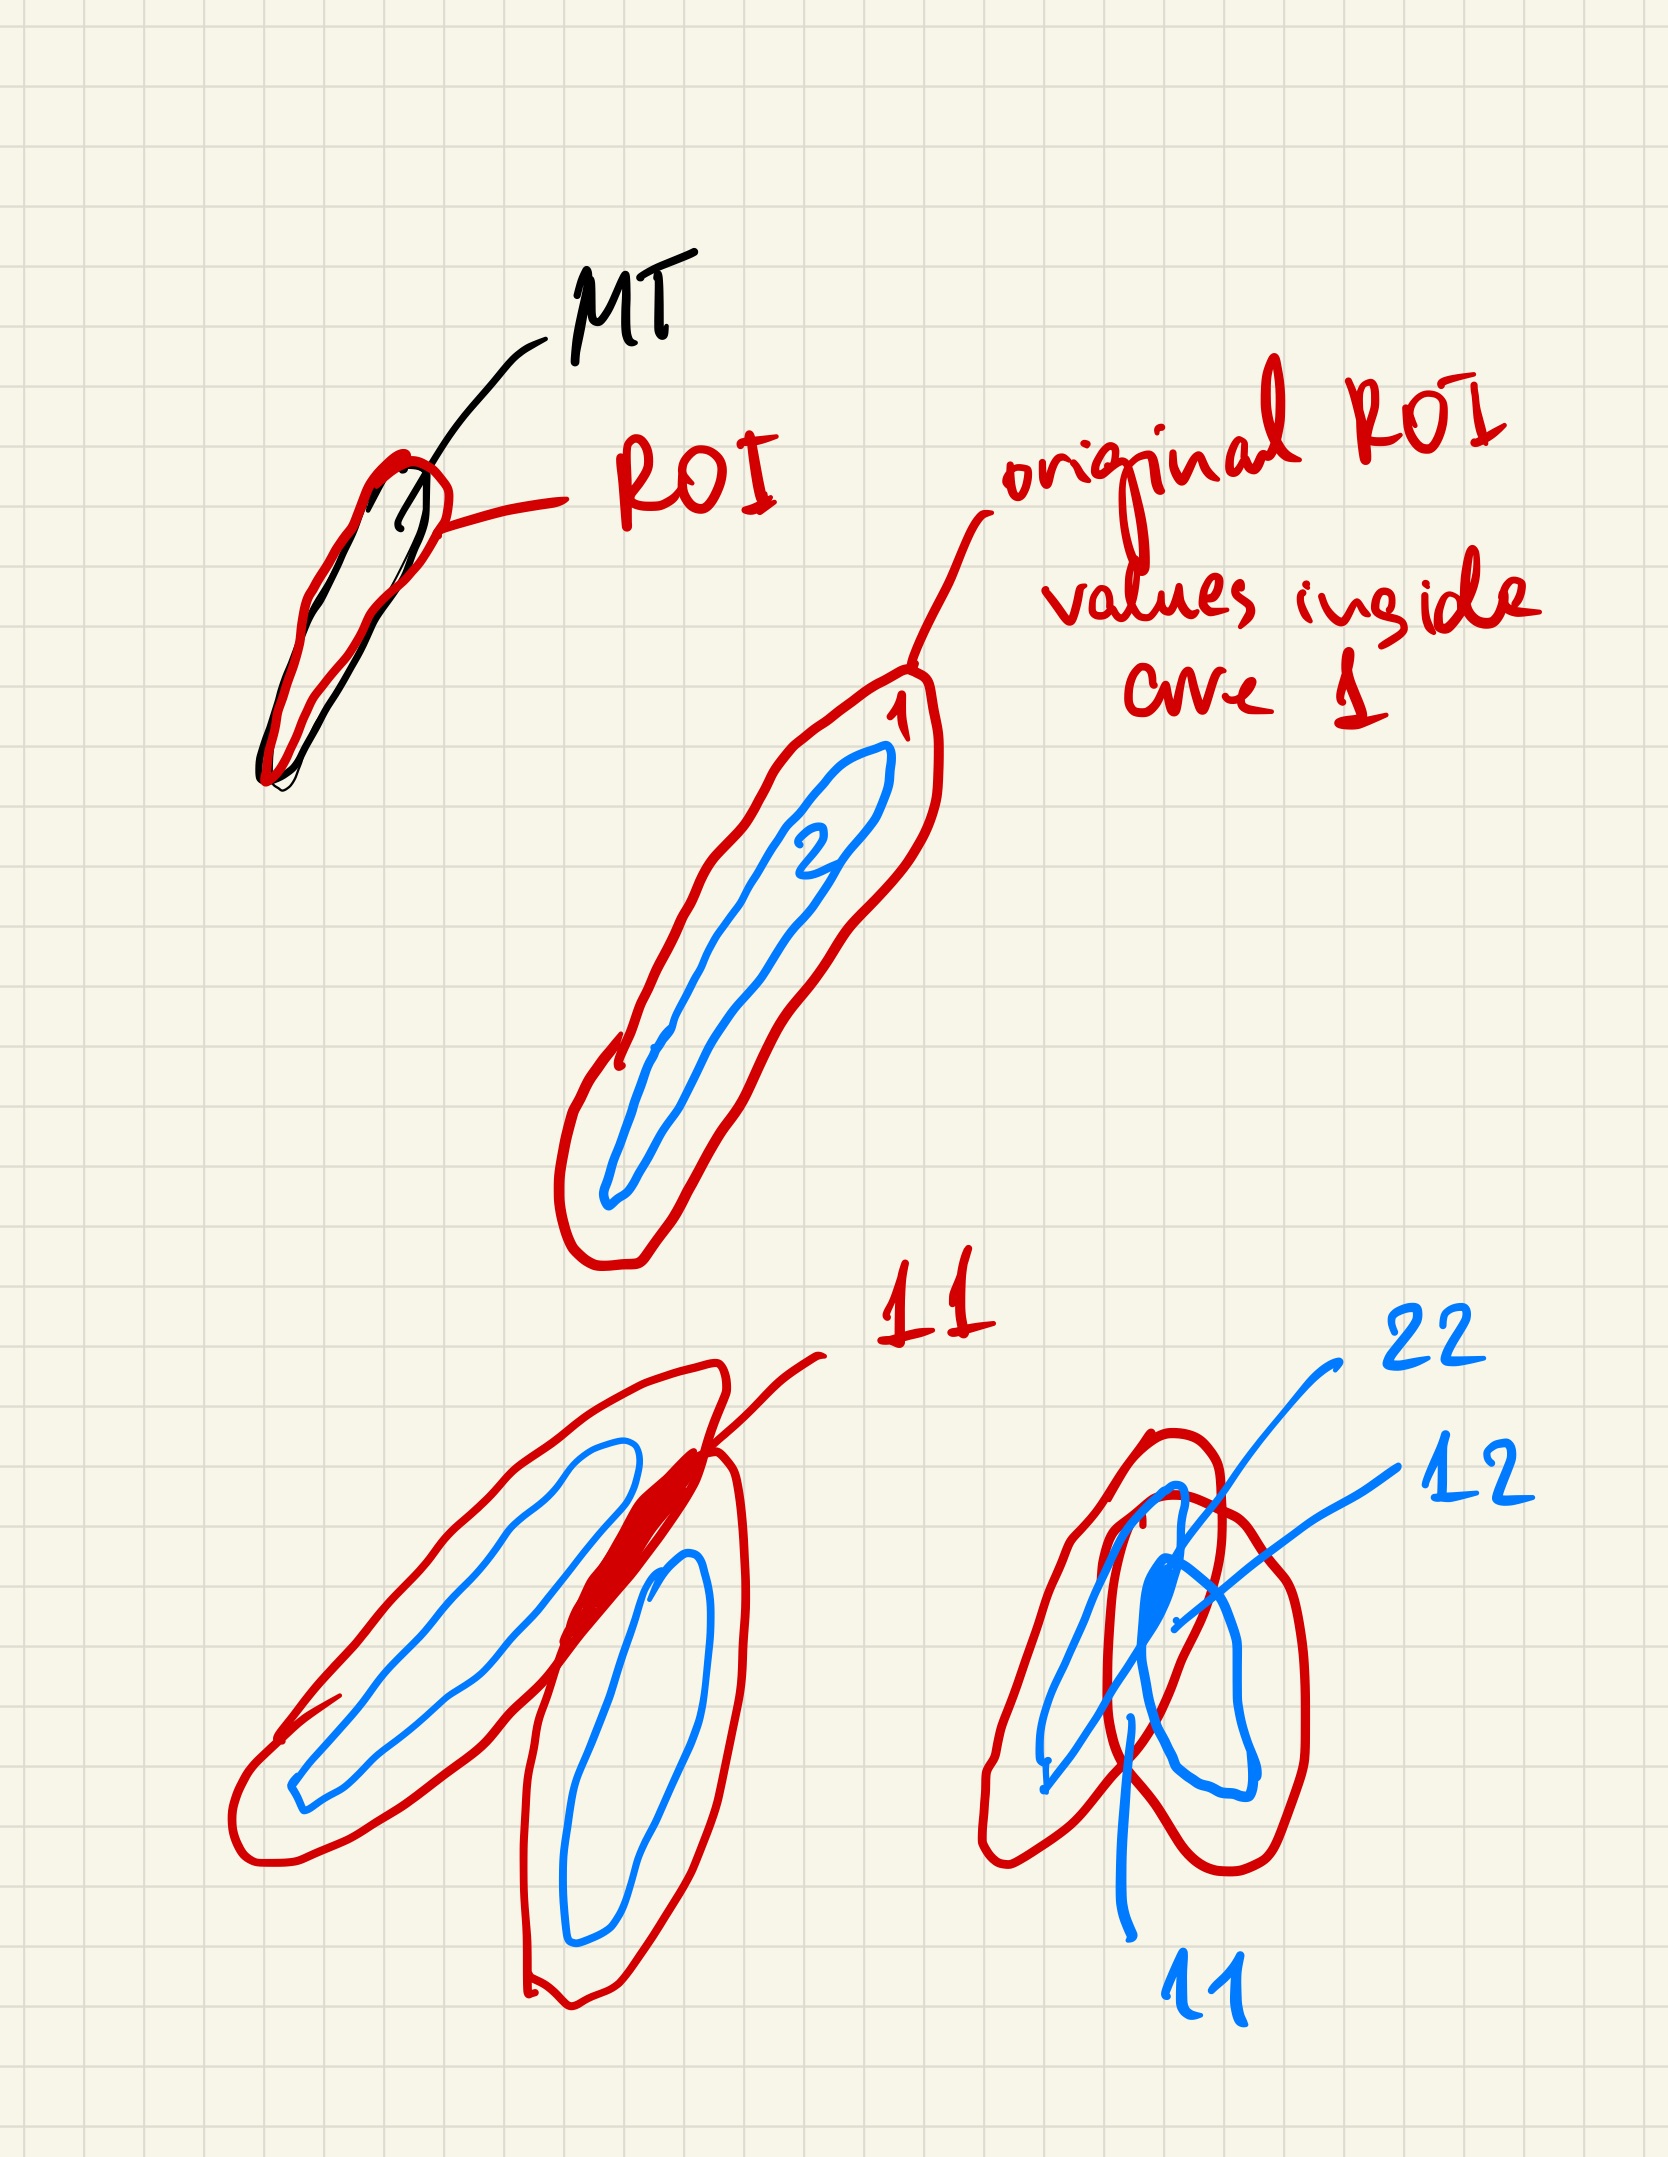 MT
ROI
original ROI
values inside
are 1
1
2
11
22
12
11